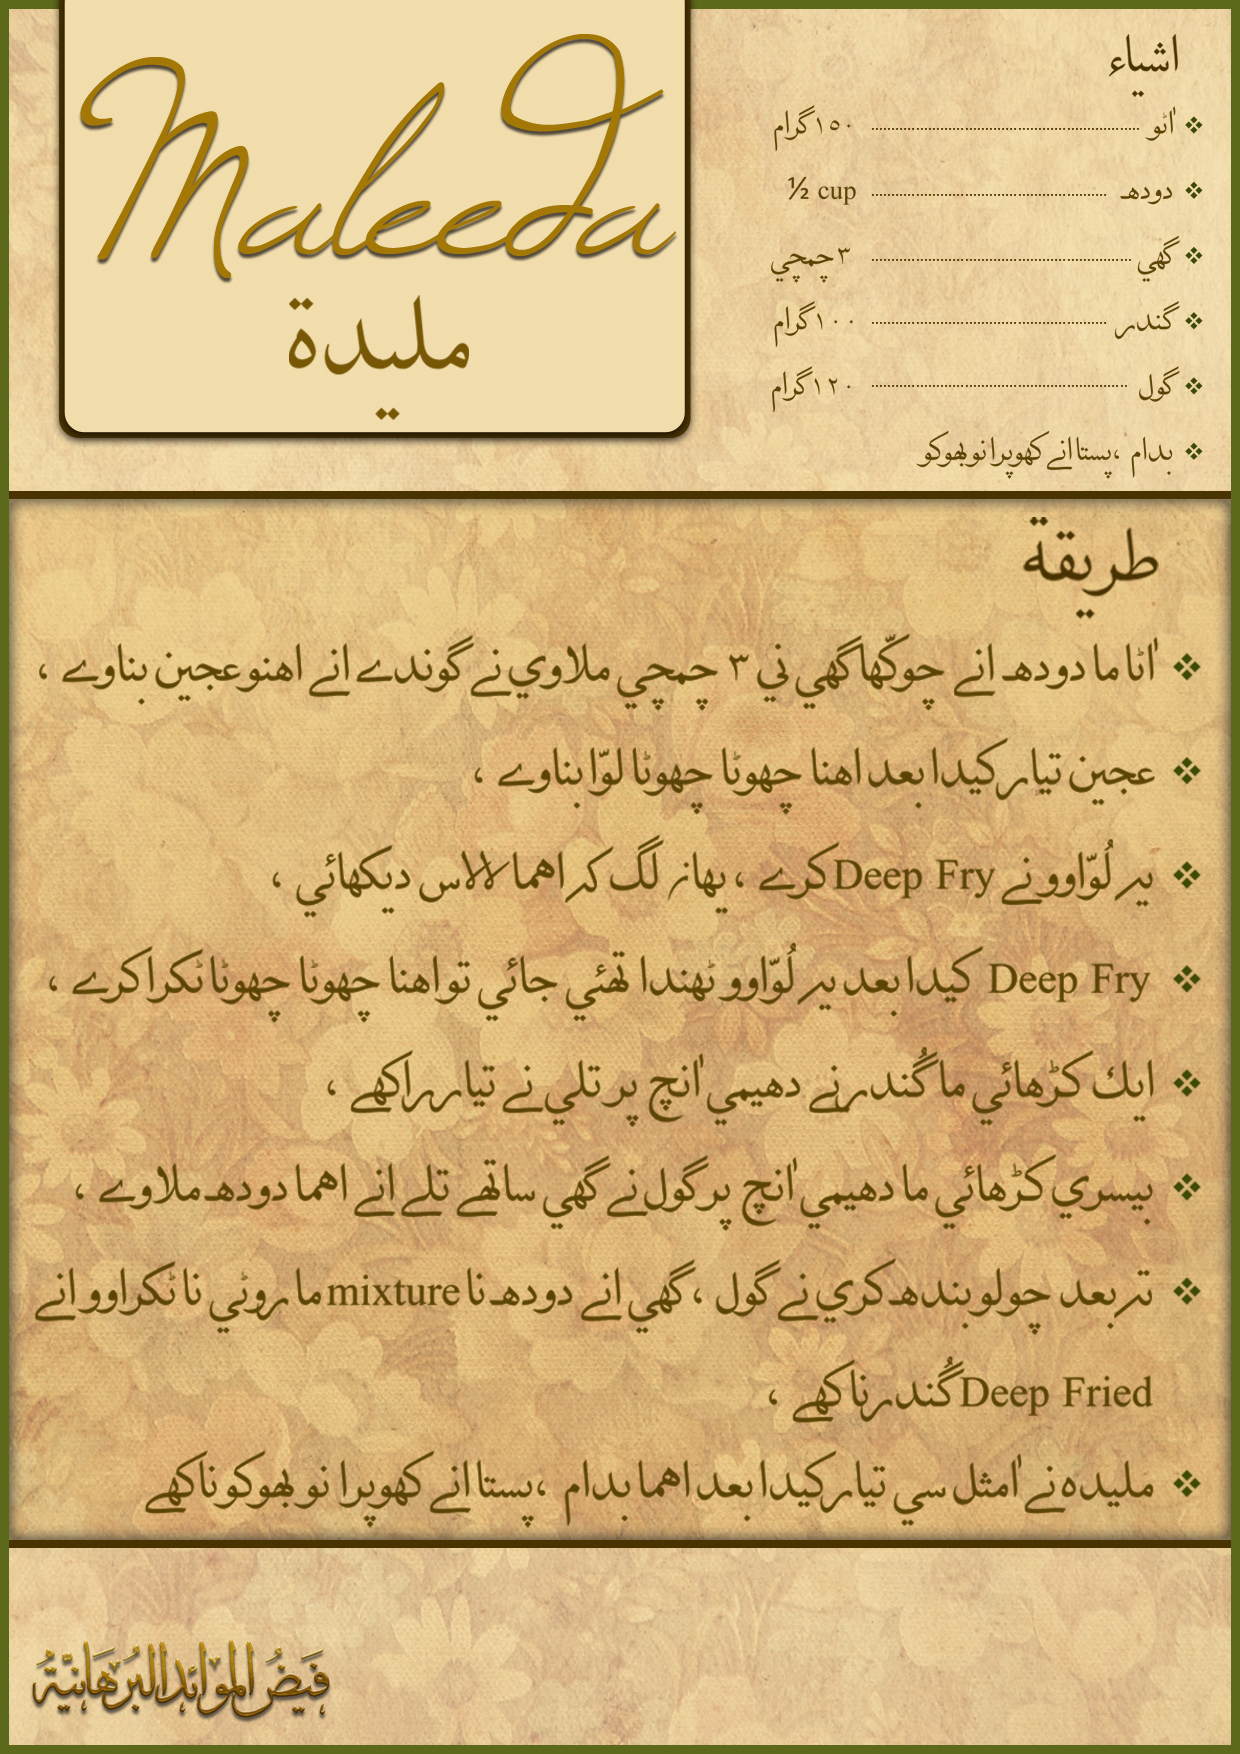 Maleeda
مليدة
اشياء
اٰٹو ١٥٠ گرام
دودهـ ½ cup
گهي ٣ چمچي
گندر ١٠٠ گرام
گول ١٢٠ گرام
بدام ، پستا انے كهوپرا نو بهوكو
طريقة
اٰٹا ما دودهـ انے چوكّها گهي ني ٣ چمچي ملاوي نے گوندے انے اهنو عجين بناوے ،
عجين تيار كيدا بعد اهنا چهوٹا چهوٹا لوّا بناوے ،
يه لُوّاوو نے Deep Fry كرے ، يهاں لگ كه اهما لالاس ديكهائي ،
Deep Fry كيدا بعد يه لُوّاوو ٹهندا تهئي جائي تو اهنا چهوٹا چهوٹا ٹكرا كرے ،
ايك كڑهائي ما گُندر نے دهيمي اٰنچ پر تلي نے تيار راكهے ،
بيسري كڑهائي ما دهيمي اٰنچ پر گول نے گهي ساتهے تلے انے اهما دودهـ ملاوے ،
ته بعد چولو بندهـ كري نے گول ، گهي انے دودهـ نا mixture ما روٹي نا ٹكراوو انے
Deep Fried گُندر ناكهے ،
مليده نے اٰمثل سي تيار كيدا بعد اهما بدام ، پستا انے كهوپرا نو بهوكو ناكهے
فَيضُ الموَائد البُرهَانيّةُ